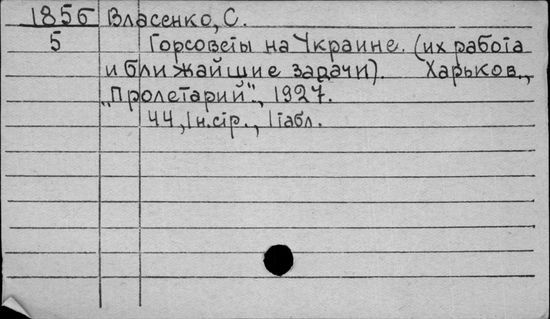 1856 Власенко, С.
5 Горсоветы на Украине. (их работа
и ближайшие задачи). Харьков.,
„Пролетарий", 1927.
44, 1 н.стр., 1 табл.